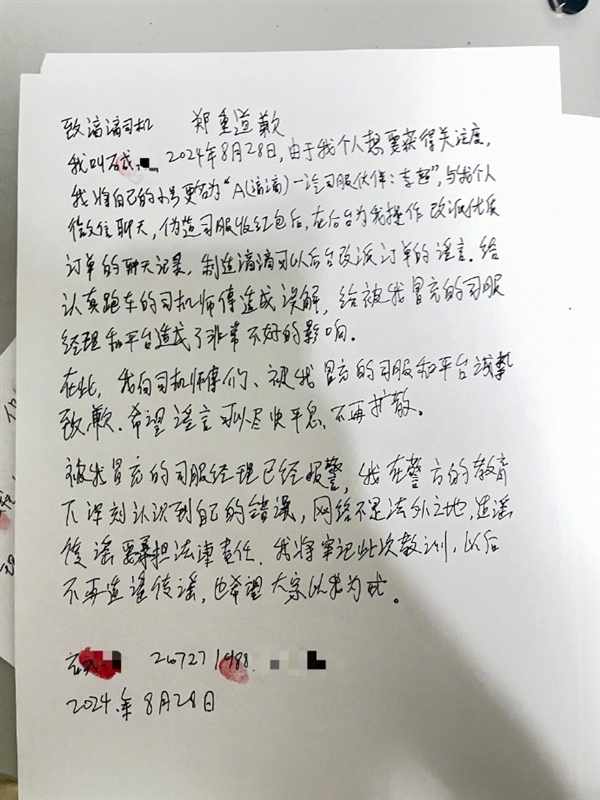 致滴滴司机 郑重道歉
我叫 2024年8月28日,由于我个人想要获得关注度,
我将自己的小号更名为“A(滴滴)-Ⅰ司服伙伴:李超”,与我个人
微信聊天,伪造司服收红包后,在后台为我操作改派优质
订单的聊天记录,制造滴滴可以后台改派订单的谣言.给
认真跑车的司机师傅造成误解,给被我冒充的司服
经理和平台造成了非常不好的影响.
在此,我向司机师傅们、被我冒充的司服和平台诚挚
致歉.希望谣言可以尽快平息、不再扩散。
被我冒充的司服经理已经报警,我在警方的教育
下深刻认识到自己的错误,网络不是法外之地,造谣
传谣要承担法律责任.我将牢记此次教训,以后
不再造谣传谣,也希望大家以我为戒。
1988
2024.年8月28日